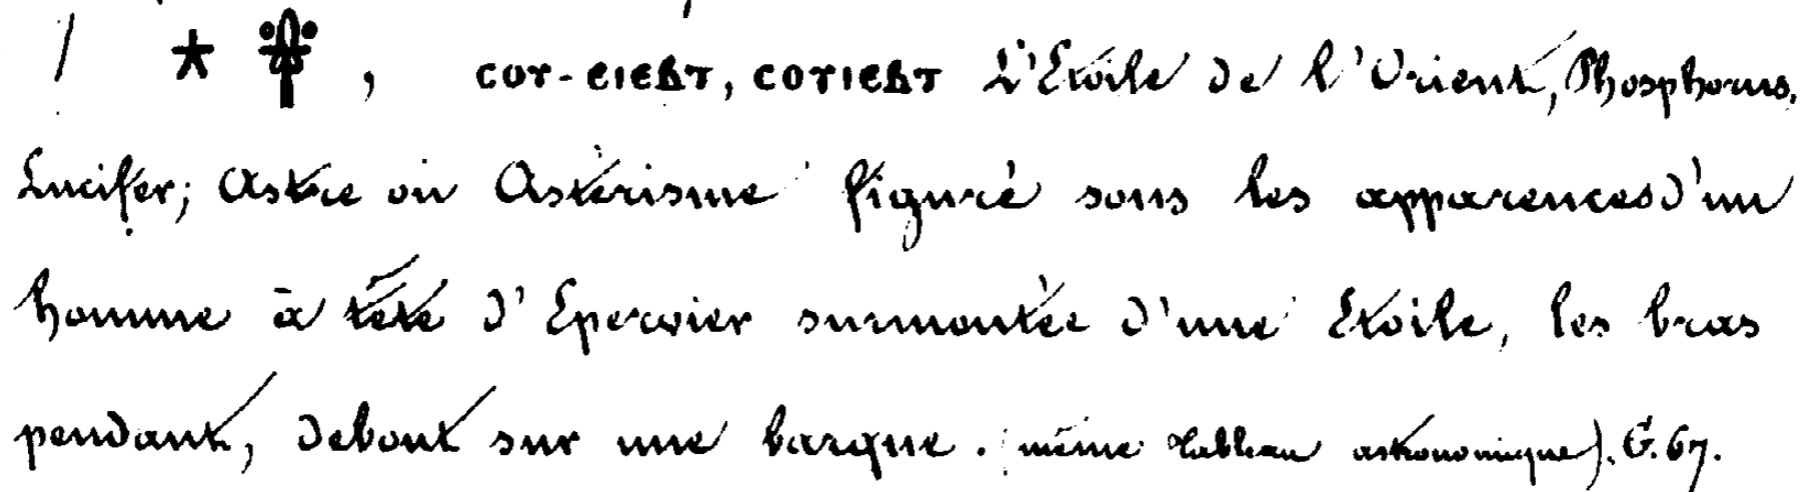 / 𓇼 𓋁 , ⲥⲟⲩ-ⲉⲓⲉⲃⲧ, ⲥⲟⲩⲓⲉⲃⲧ L'Etoile de l'Orient, Phosphorus,
Lucifer; Astre ou Astérisme figuré sous les apparences d'un
homme à tête d'Epervier surmontée d'une Etoile, les bras
pendant, debout sur une barque. (même tableau astronomique). G. 67.